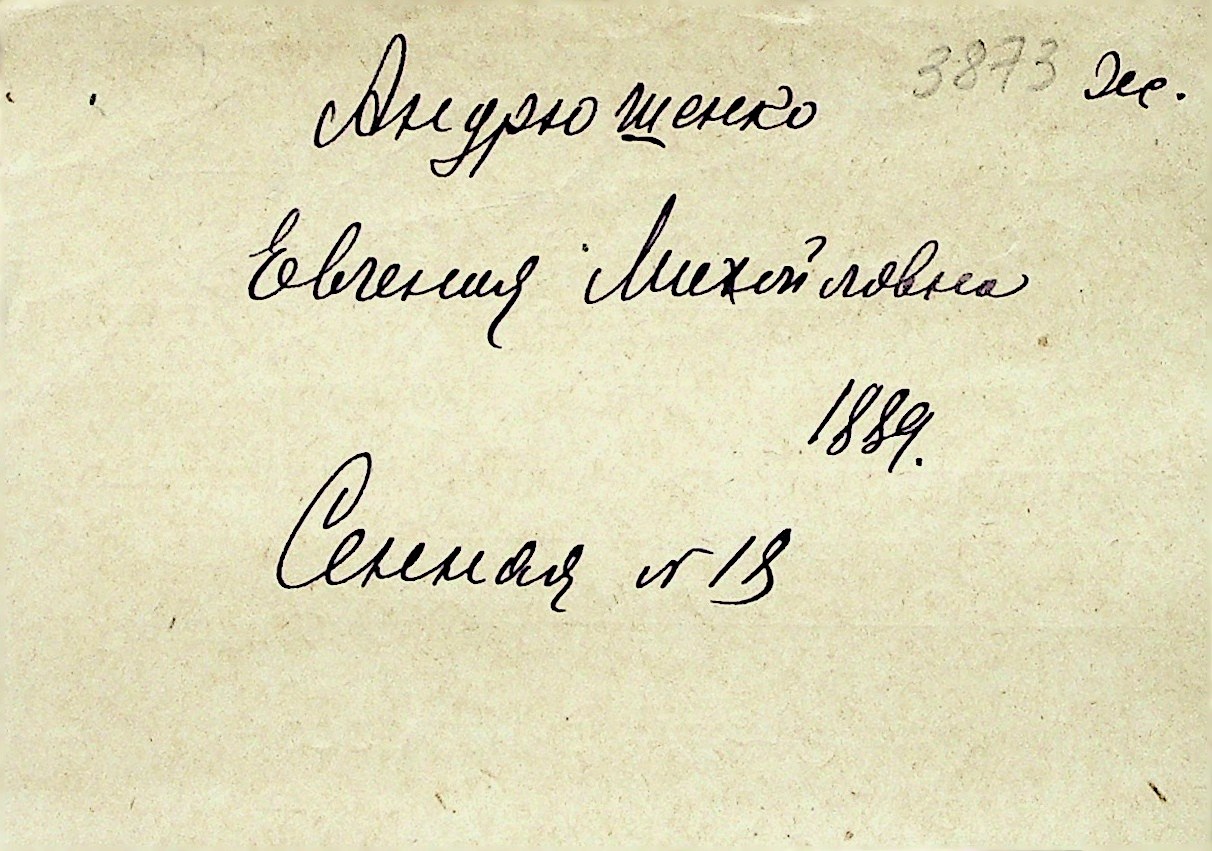 3873 ж.
Андрюшенко
Евгения Михайловна
1889.
Сенная № 18